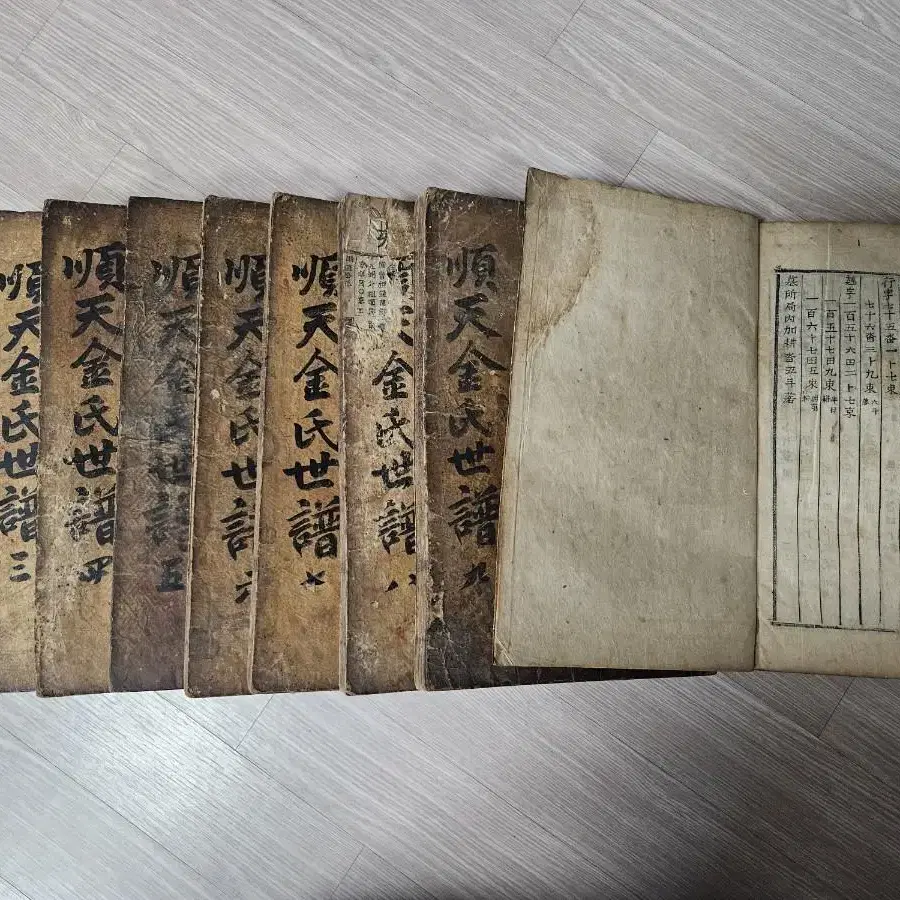 順天金氏世譜 三
順天金氏世譜 四
順天金氏世譜 五
順天金氏世譜 六
順天金氏世譜 七
金氏世譜 八
順天金氏世譜 九
行字七十五畓一卜七束
七十六畓三卜九束
字一百五十六田二卜七束
一百五十七田九束
一百六十七田五束
墓所局內加耕畓五斗落